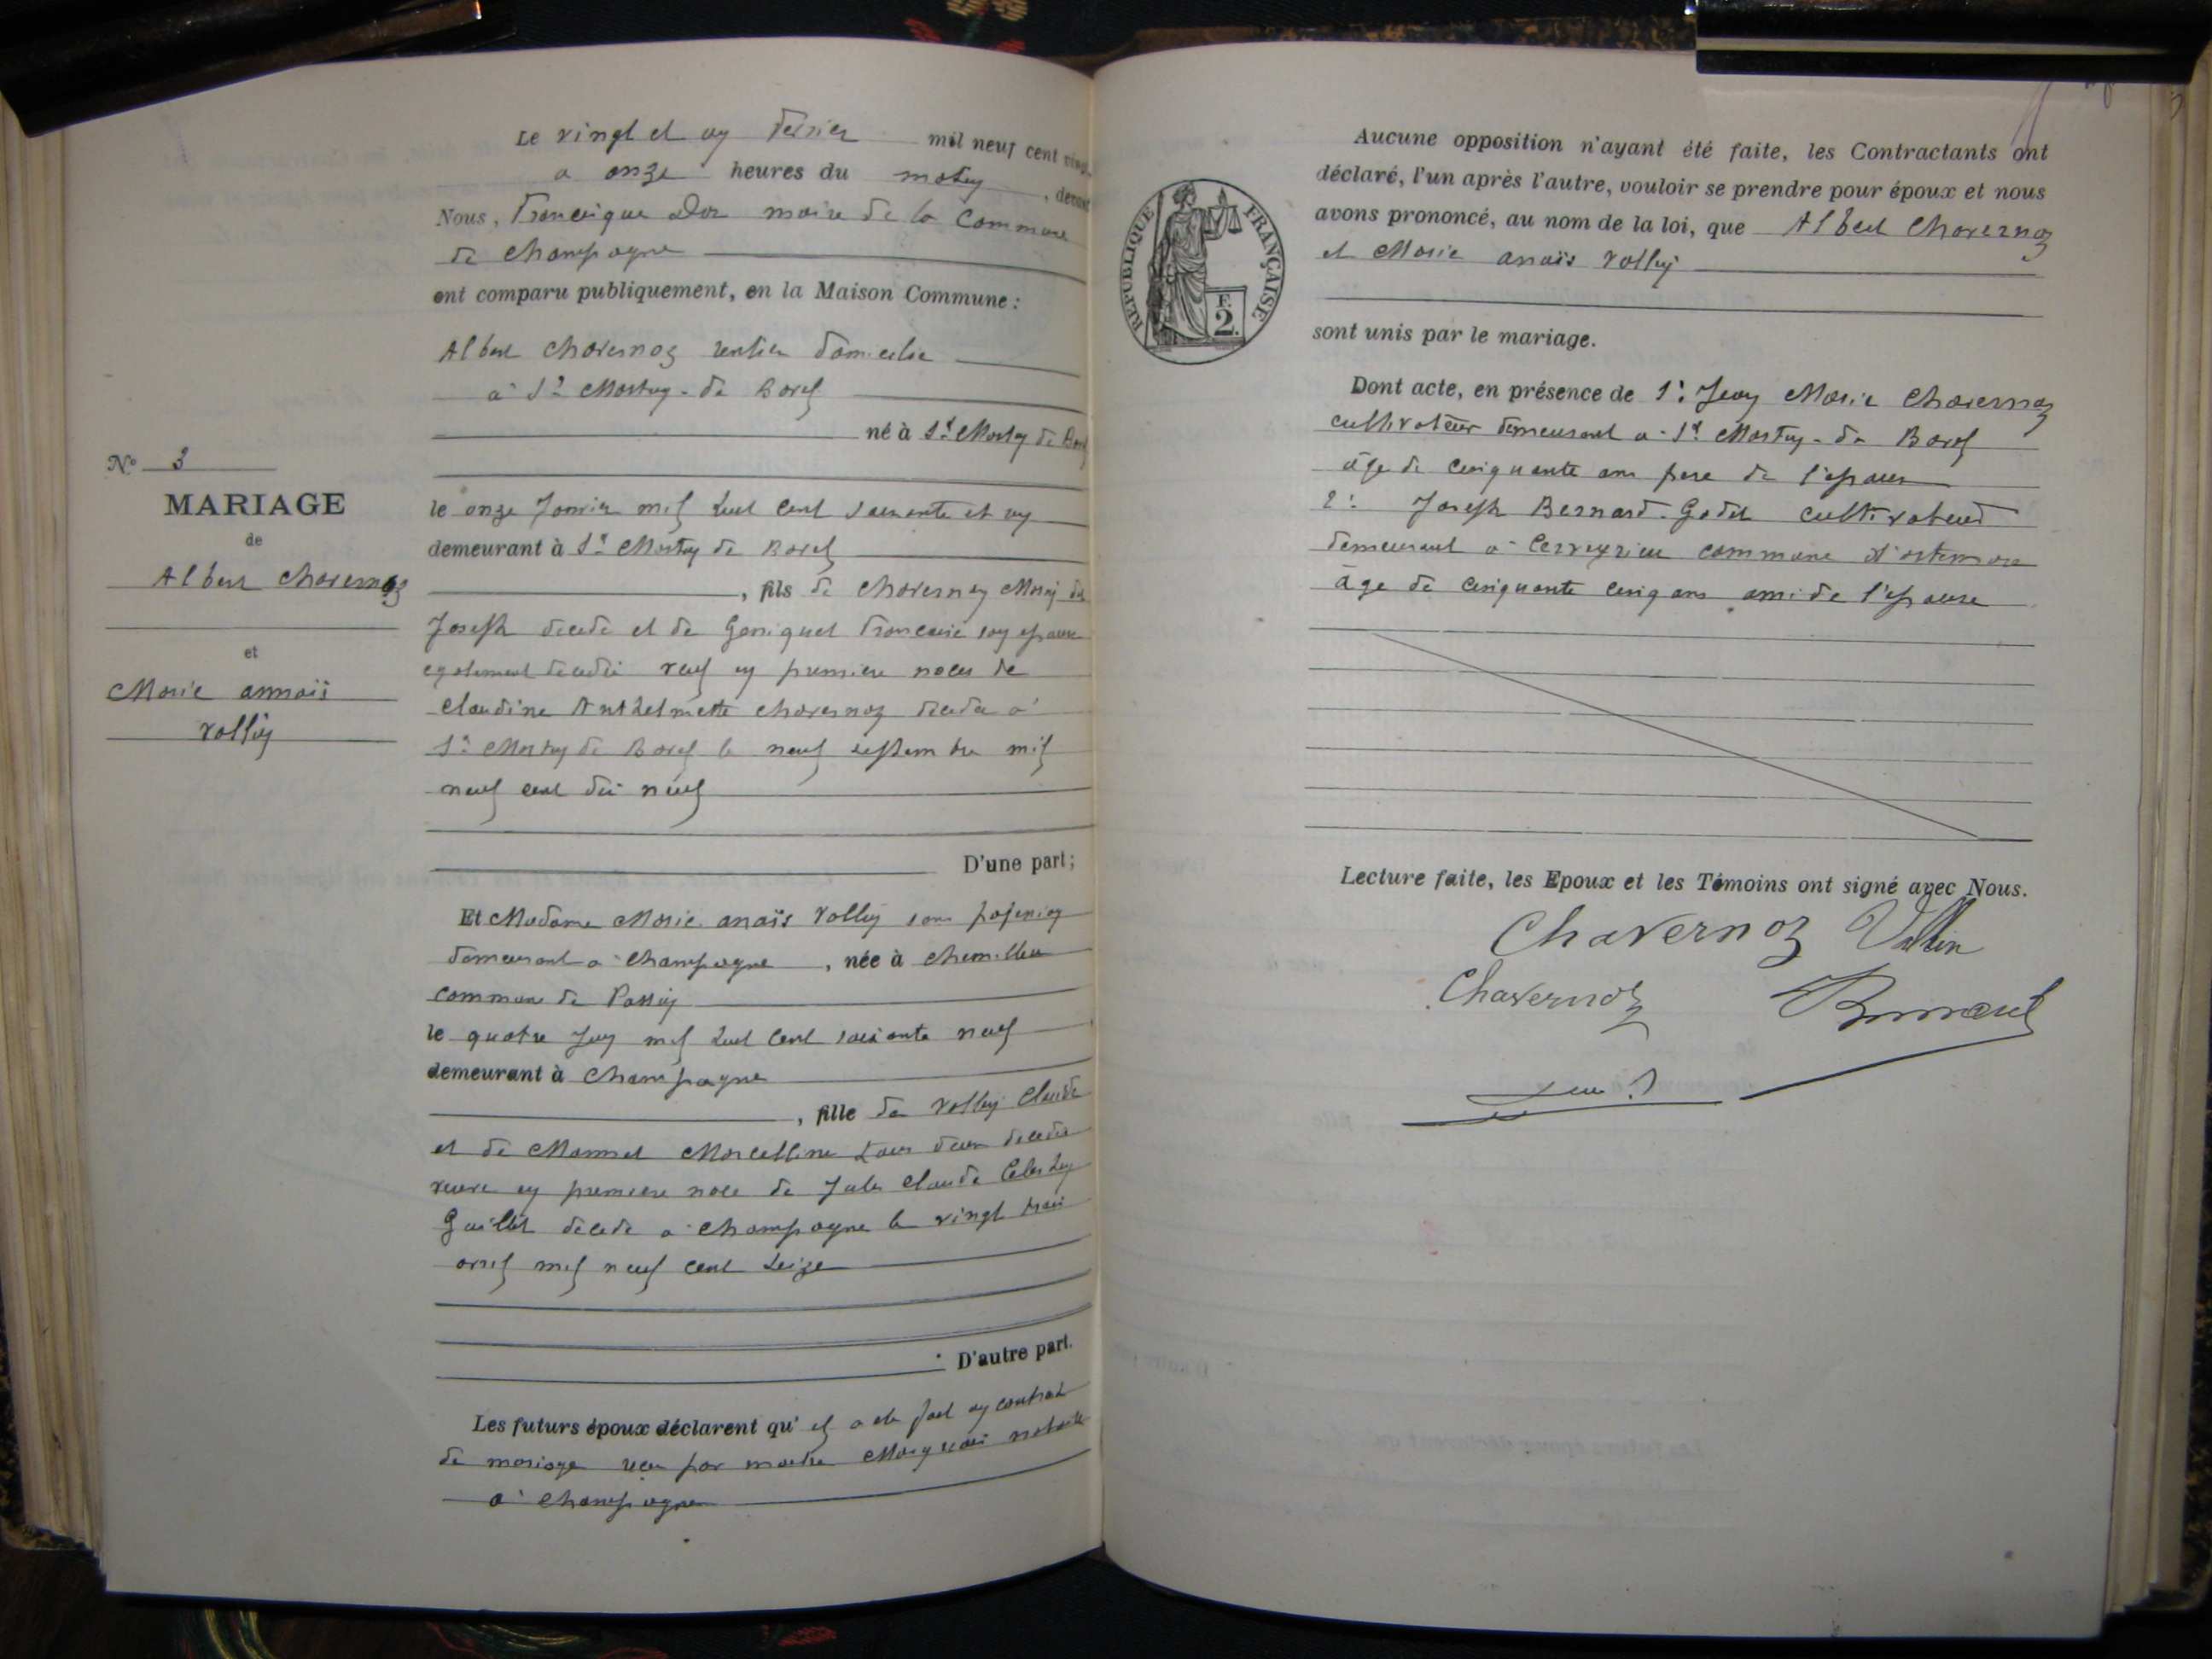 Le vingt et un Février mil neuf cent vingt
a onze heures du matin, devant
Nous, Francique Dor maire de la Commune
de Champagne
ont comparu publiquement, en la Maison Commune :
Albert Chavernoz rentier domicilie
à St Martin-de Bavel
né à St Martin de Bavel
Nº 3
MARIAGE
de
Albert Chavernoz
et
Marie annais
vallin
le onze Janvier mil huit cent soixante et un
demeurant à St Martin de Bavel
, fils de Chavernoz
Joseph decede et de Francoise son epouse
egalement decedée veuf en premiere noces de
Claudine Anthelmette Chavernoz decede a
St Martin de Bavel le neuf septembre mil
neuf cent dix neuf
D'une part ;
Et Madame Marie anaïs Vallin sans profession
demeurant a Champagne, née à Chemillieu
commune de Passin
le quatre Juin mil huit cent soixante neuf
demeurant à Champagne
, fille de Vallin Claude
et de Marcelline tous deux decedés
veuve en premiere noce de Jules Claude Celestin
Guillet decede a Champagne le vingt trois
avril mil neuf cent seize
D'autre part.
Les futurs époux déclarent qu' il a ete fait un contrat
de mariage reçu par maitre notaire
a Champagne
RÉPUBLIQUE FRANÇAISE
F.
2.
Aucune opposition n'ayant été faite, les Contractants ont
déclaré, l'un après l'autre, vouloir se prendre pour époux et nous
avons prononcé, au nom de la loi, que Albert Chavernoz
et Marie anaïs Vallin
sont unis par le mariage.
Dont acte, en présence de 1º Jean Marie Chavernoz
cultivateur demeurant a St Martin-de Bavel
âge de cinquante ans frere de l'epoux
2º Joseph Bernard-Godet cultivateur
demeurant a Cerveyrieu commune d'artemare
âge de cinquante cinq ans ami de l'epouse
Lecture faite, les Epoux et les Témoins ont signé avec Nous.
Chavernoz Vallin
Chavernoz Bernard